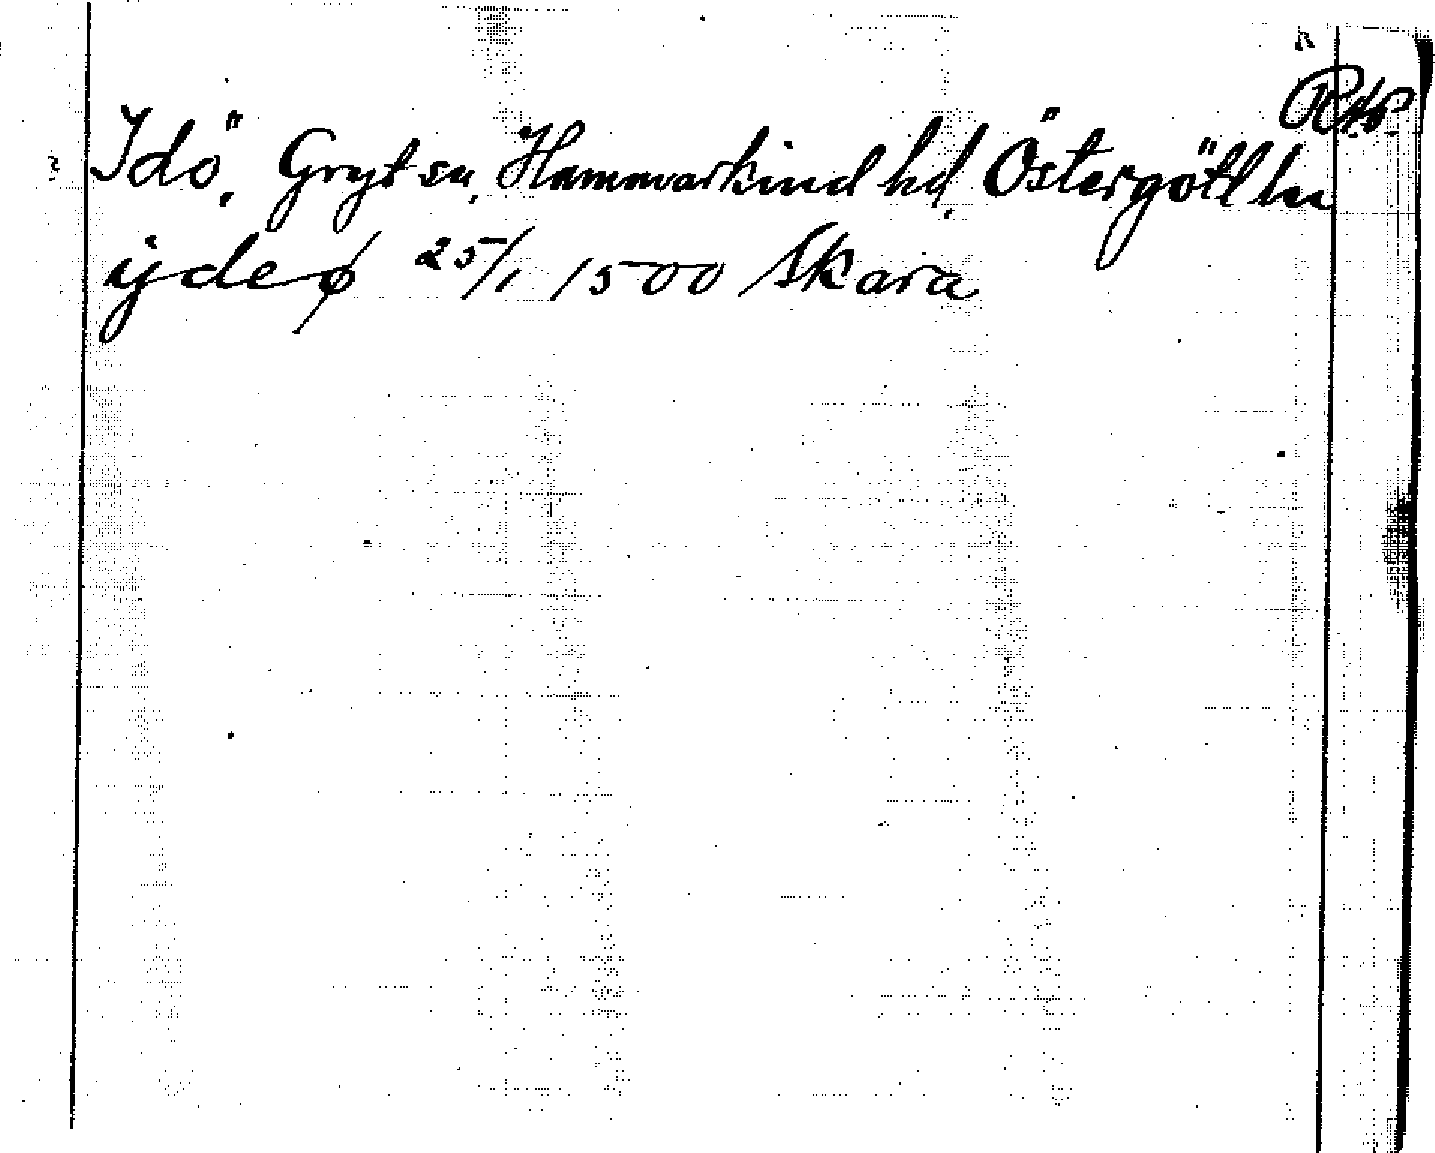 Idö, Gryt sn, Hammarkind hd, Östergötl ln
ijdeø 25/1 1500 Skara